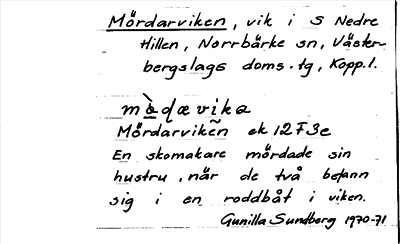 Mördarviken, vik i S Nedre
Hillen, Norrbärke sn, Väster-
bergslags doms.tg, Kopp.l.
mòḍavika
Mördarviken ek 12F3e
En skomakare mördade sin
hustru, när de två befann
sig i en roddbåt i viken.
Gunilla Sundberg 1970-71